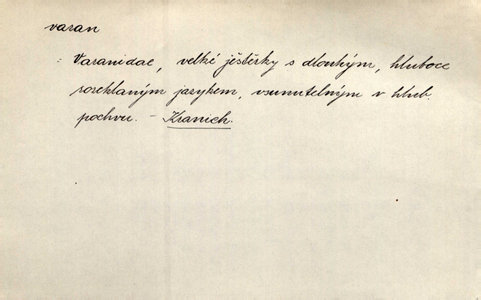 varan
: Varanidae, velké ještěrky s dlouhým, hluboce
rozeklaným jazykem, vsunutelným v hlub.
pochvu. – Kranich.